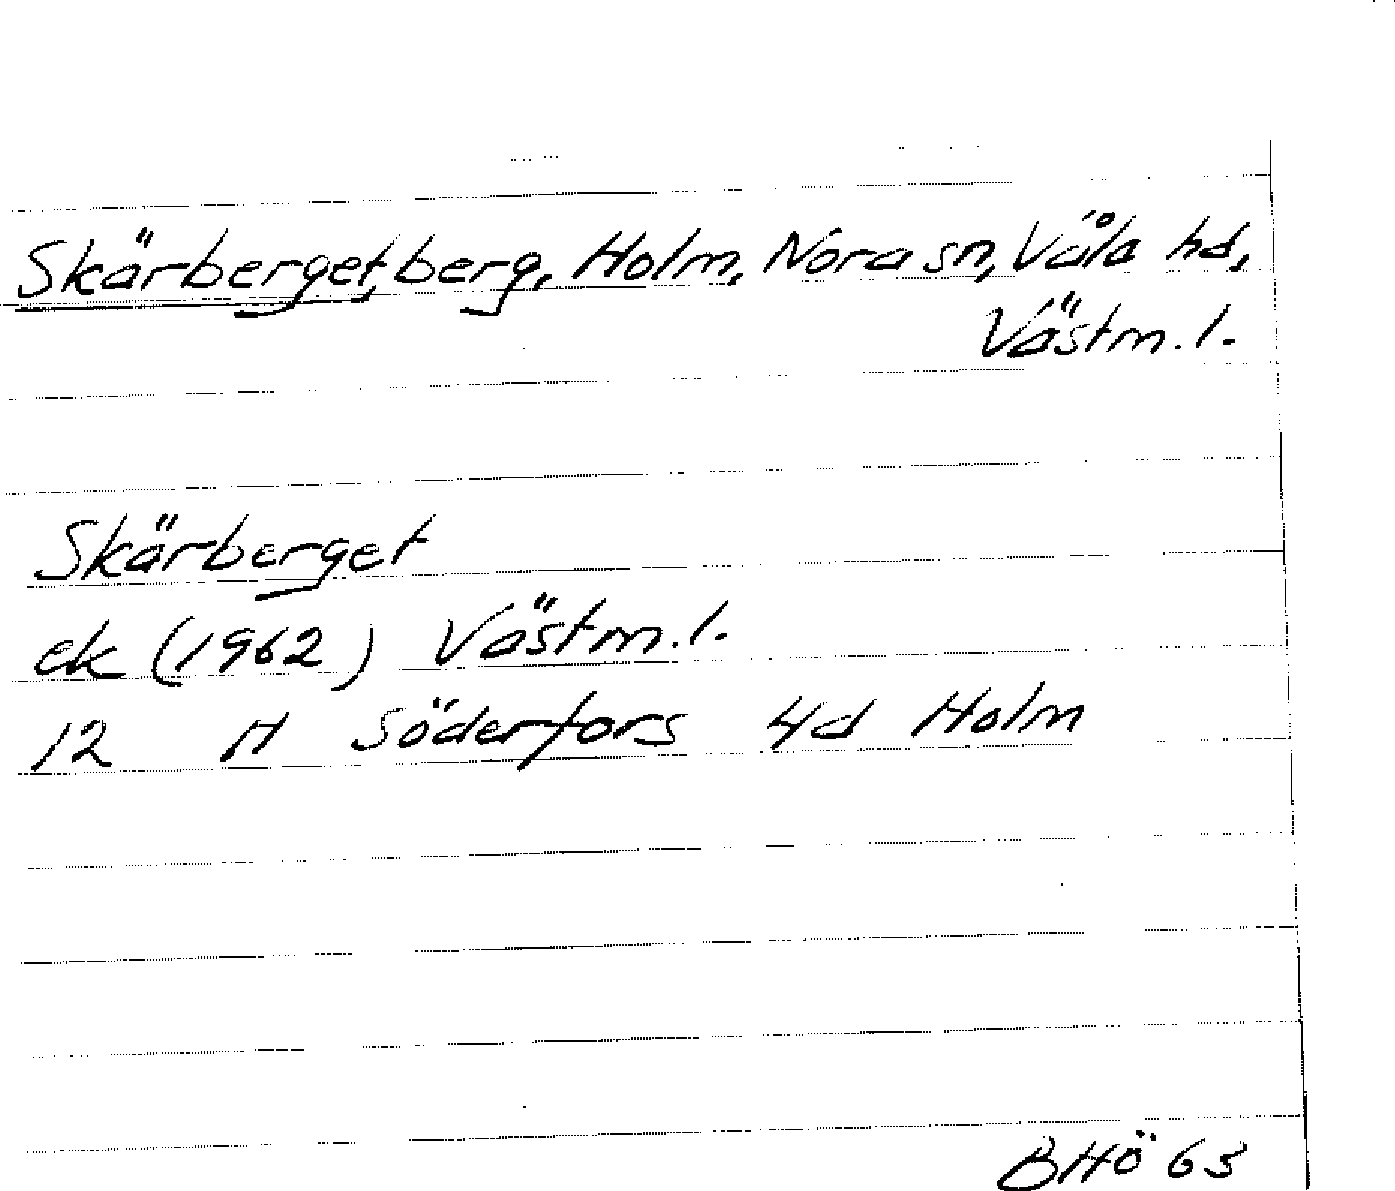 Skärberget, berg, Holm, Nora sn, Våla hd,
Västm. l.
Skärberget
ek (1962) Västm. l.
12 H Söderfors 4d Holm
BHö 63